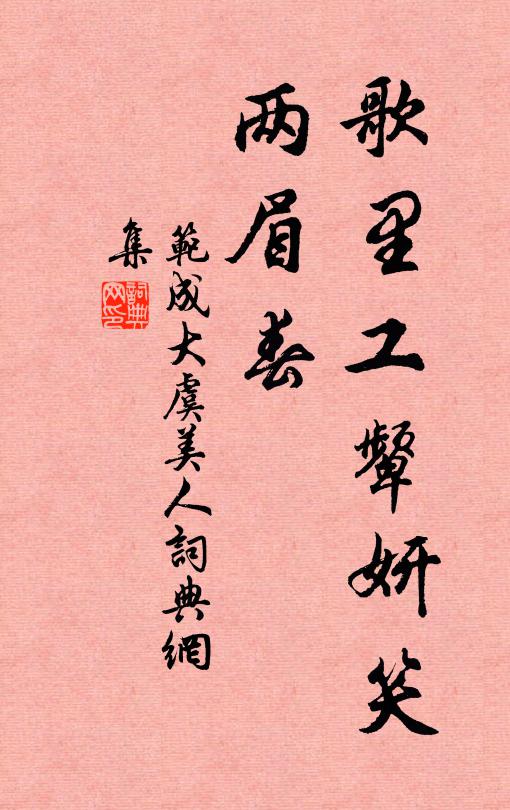 歌里工颦妍笑
两眉春
範成大虞美人詞典網
集
詞典网印